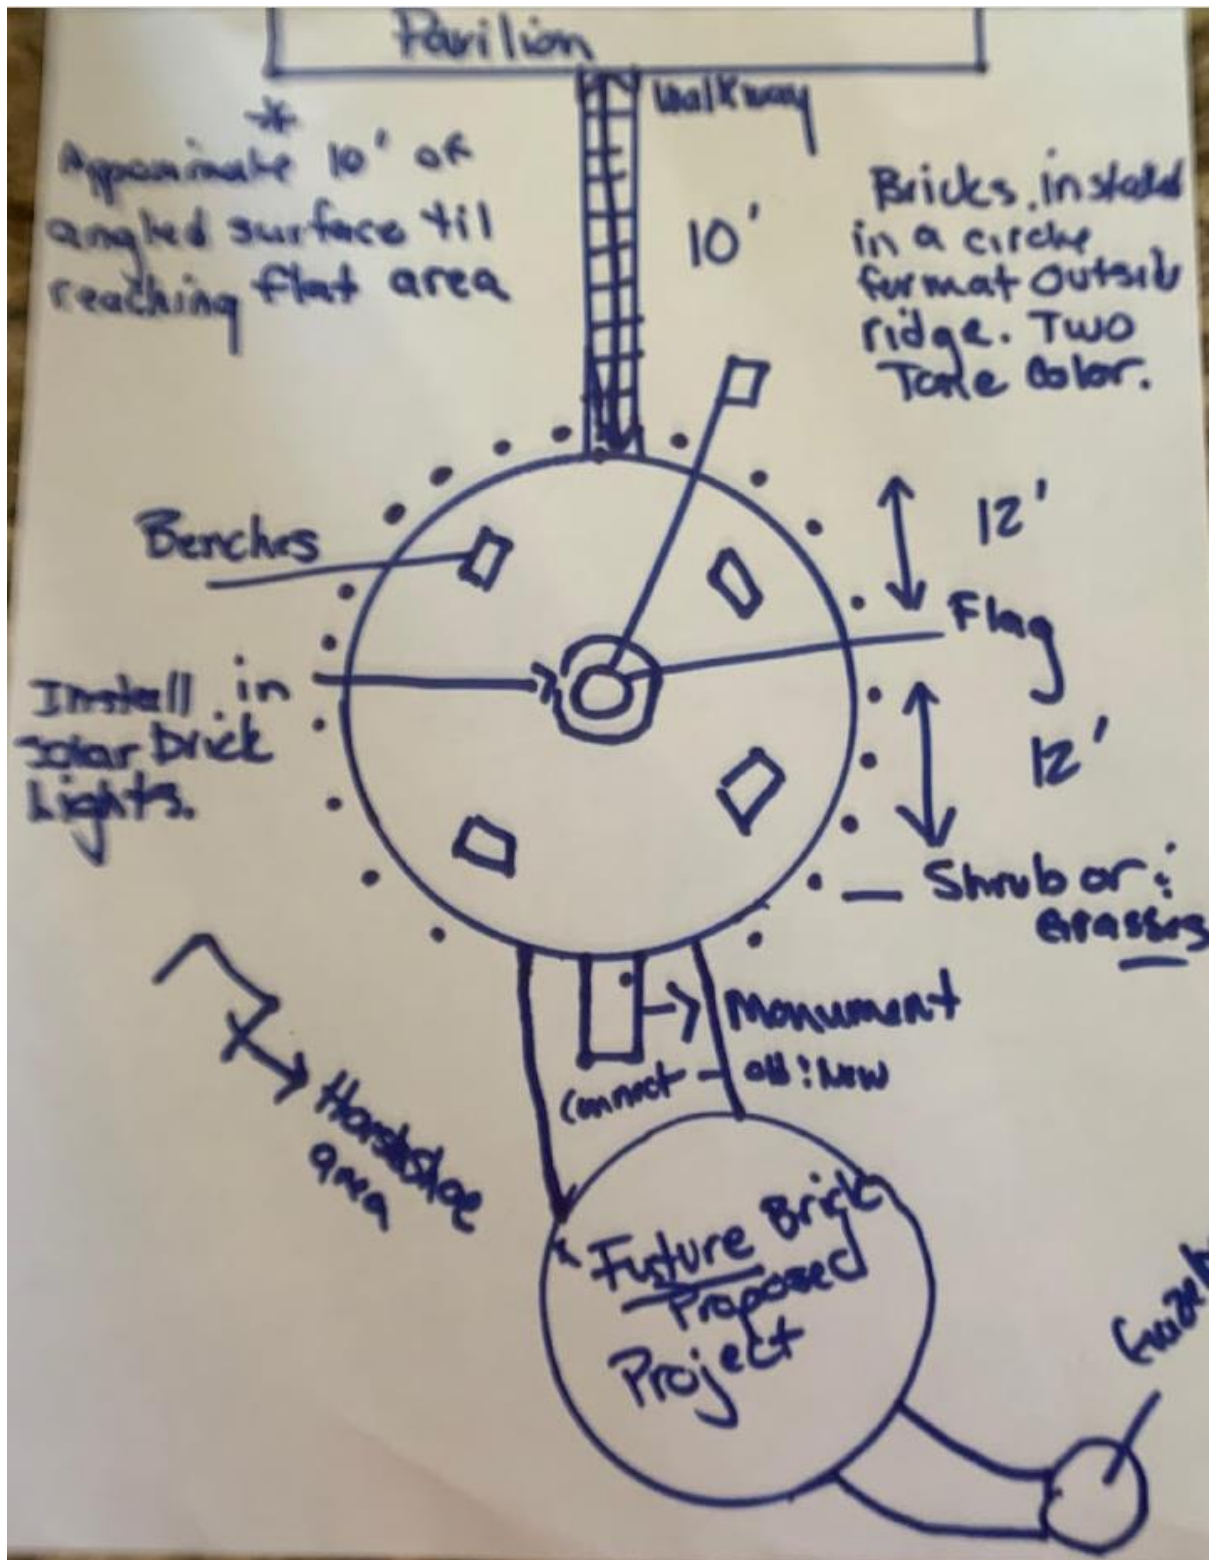 Pavilion
Walkway
*
Approximate 10' of
angled surface til
reaching flat area
10'
Bricks installed
in a circle
format outside
ridge. Two
Tone Color.
Benches
12'
Flag
Install in
solar brick
Lights.
12'
Shrub or
Grasses
Monument
Connect - old : New
Horseshoe
area
Future Brick
Proposed
Project